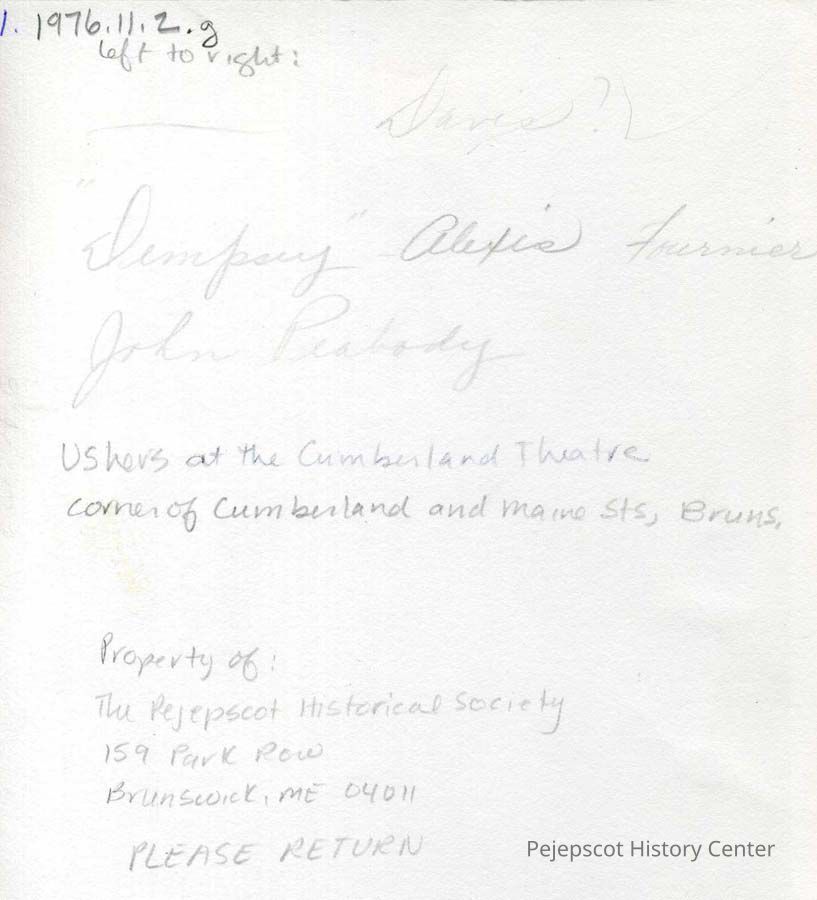 1. 1976.11.2.g
left to right:
Davis?
"Dempsey" Alexis Fournier
John Peabody
Ushers at the Cumberland Theatre
corner of Cumberland and Maine Sts, Bruns.
Property of:
The Pejepscot Historical Society
159 Park Row
Brunswick, ME 04011
PLEASE RETURN
Pejepscot History Center